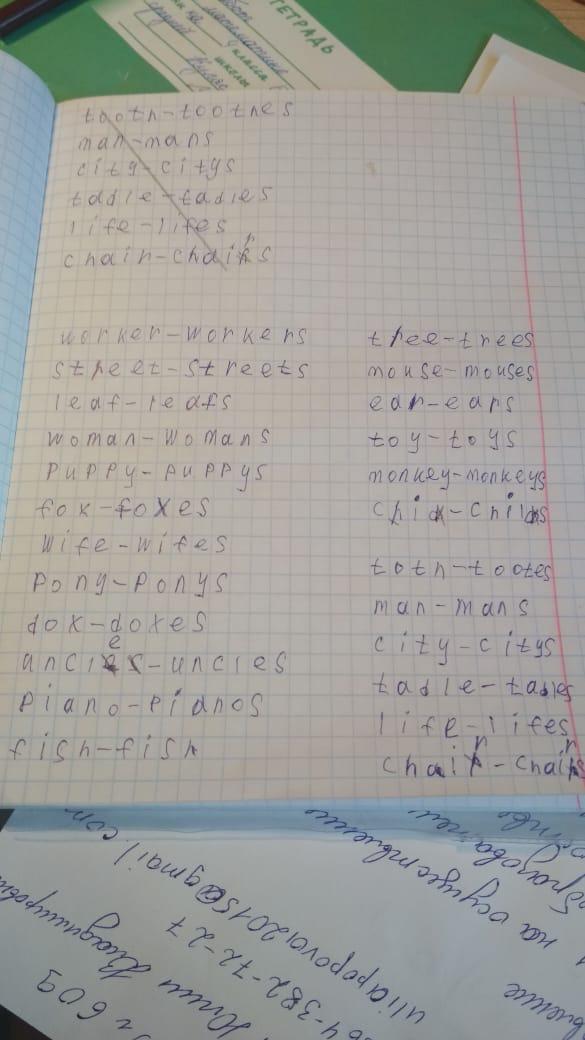 ТЕТРАДЬ
математике
4 класса
школы
tooth-toothes
man-mans
city-citys
tadle-tadles
life-lifes
chair-chairs
worker-workers
street-streets
leaf-leafs
woman-womans
puppy-puppys
fox-foxes
wife-wifes
pony-ponys
dox-doxes
uncle-uncles
piano-pianos
fish-fish
tree-trees
mouse-mouses
ear-ears
toy-toys
monkey-monkeys
toth-tootes
man-mans
city-citys
tadle-tadles
life-lifes
chair-chairs
на осуществление
gmail.com
64-382-72-27
Юлии
609